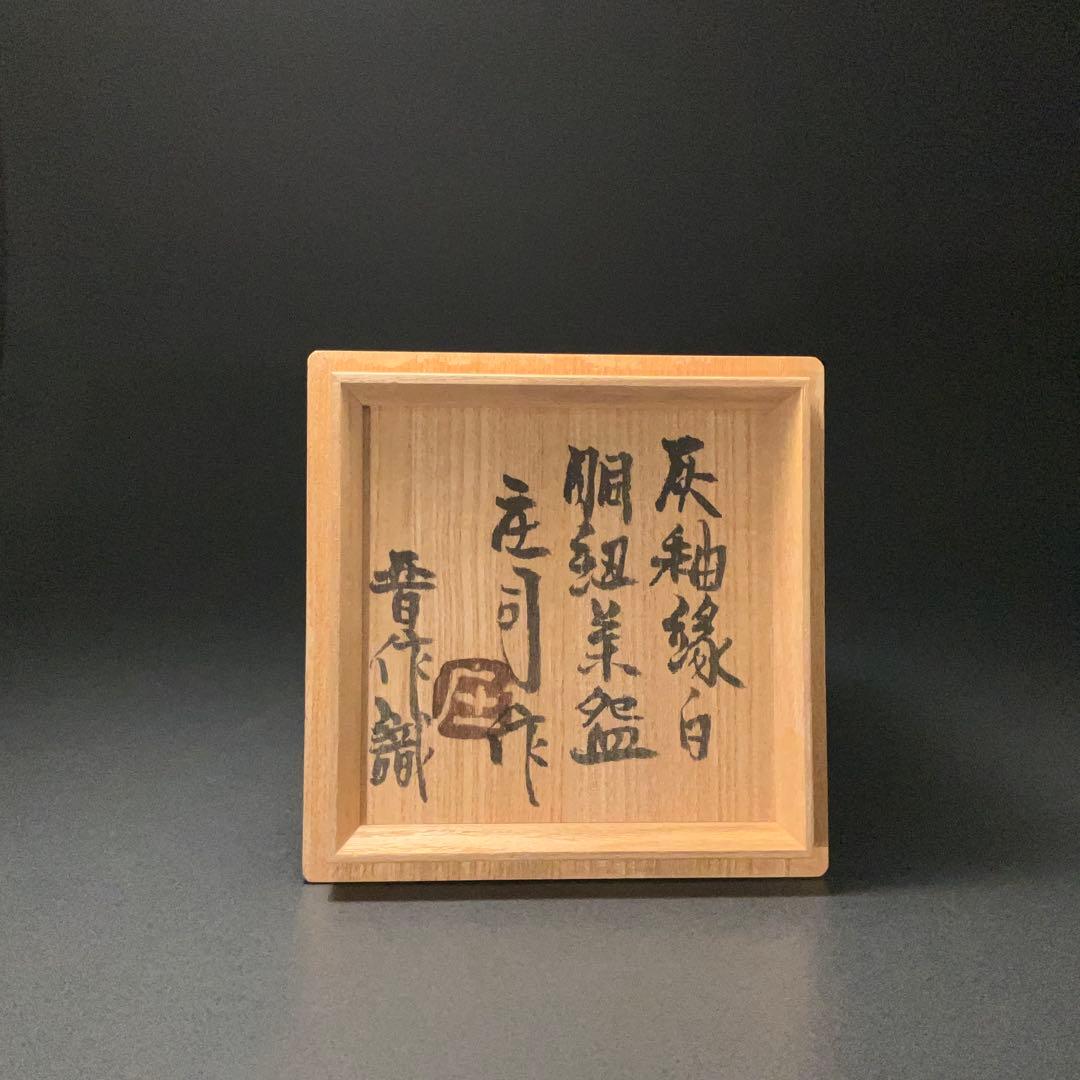 灰釉緑白
胴紐茶盌
庄司作
晋作識
庄